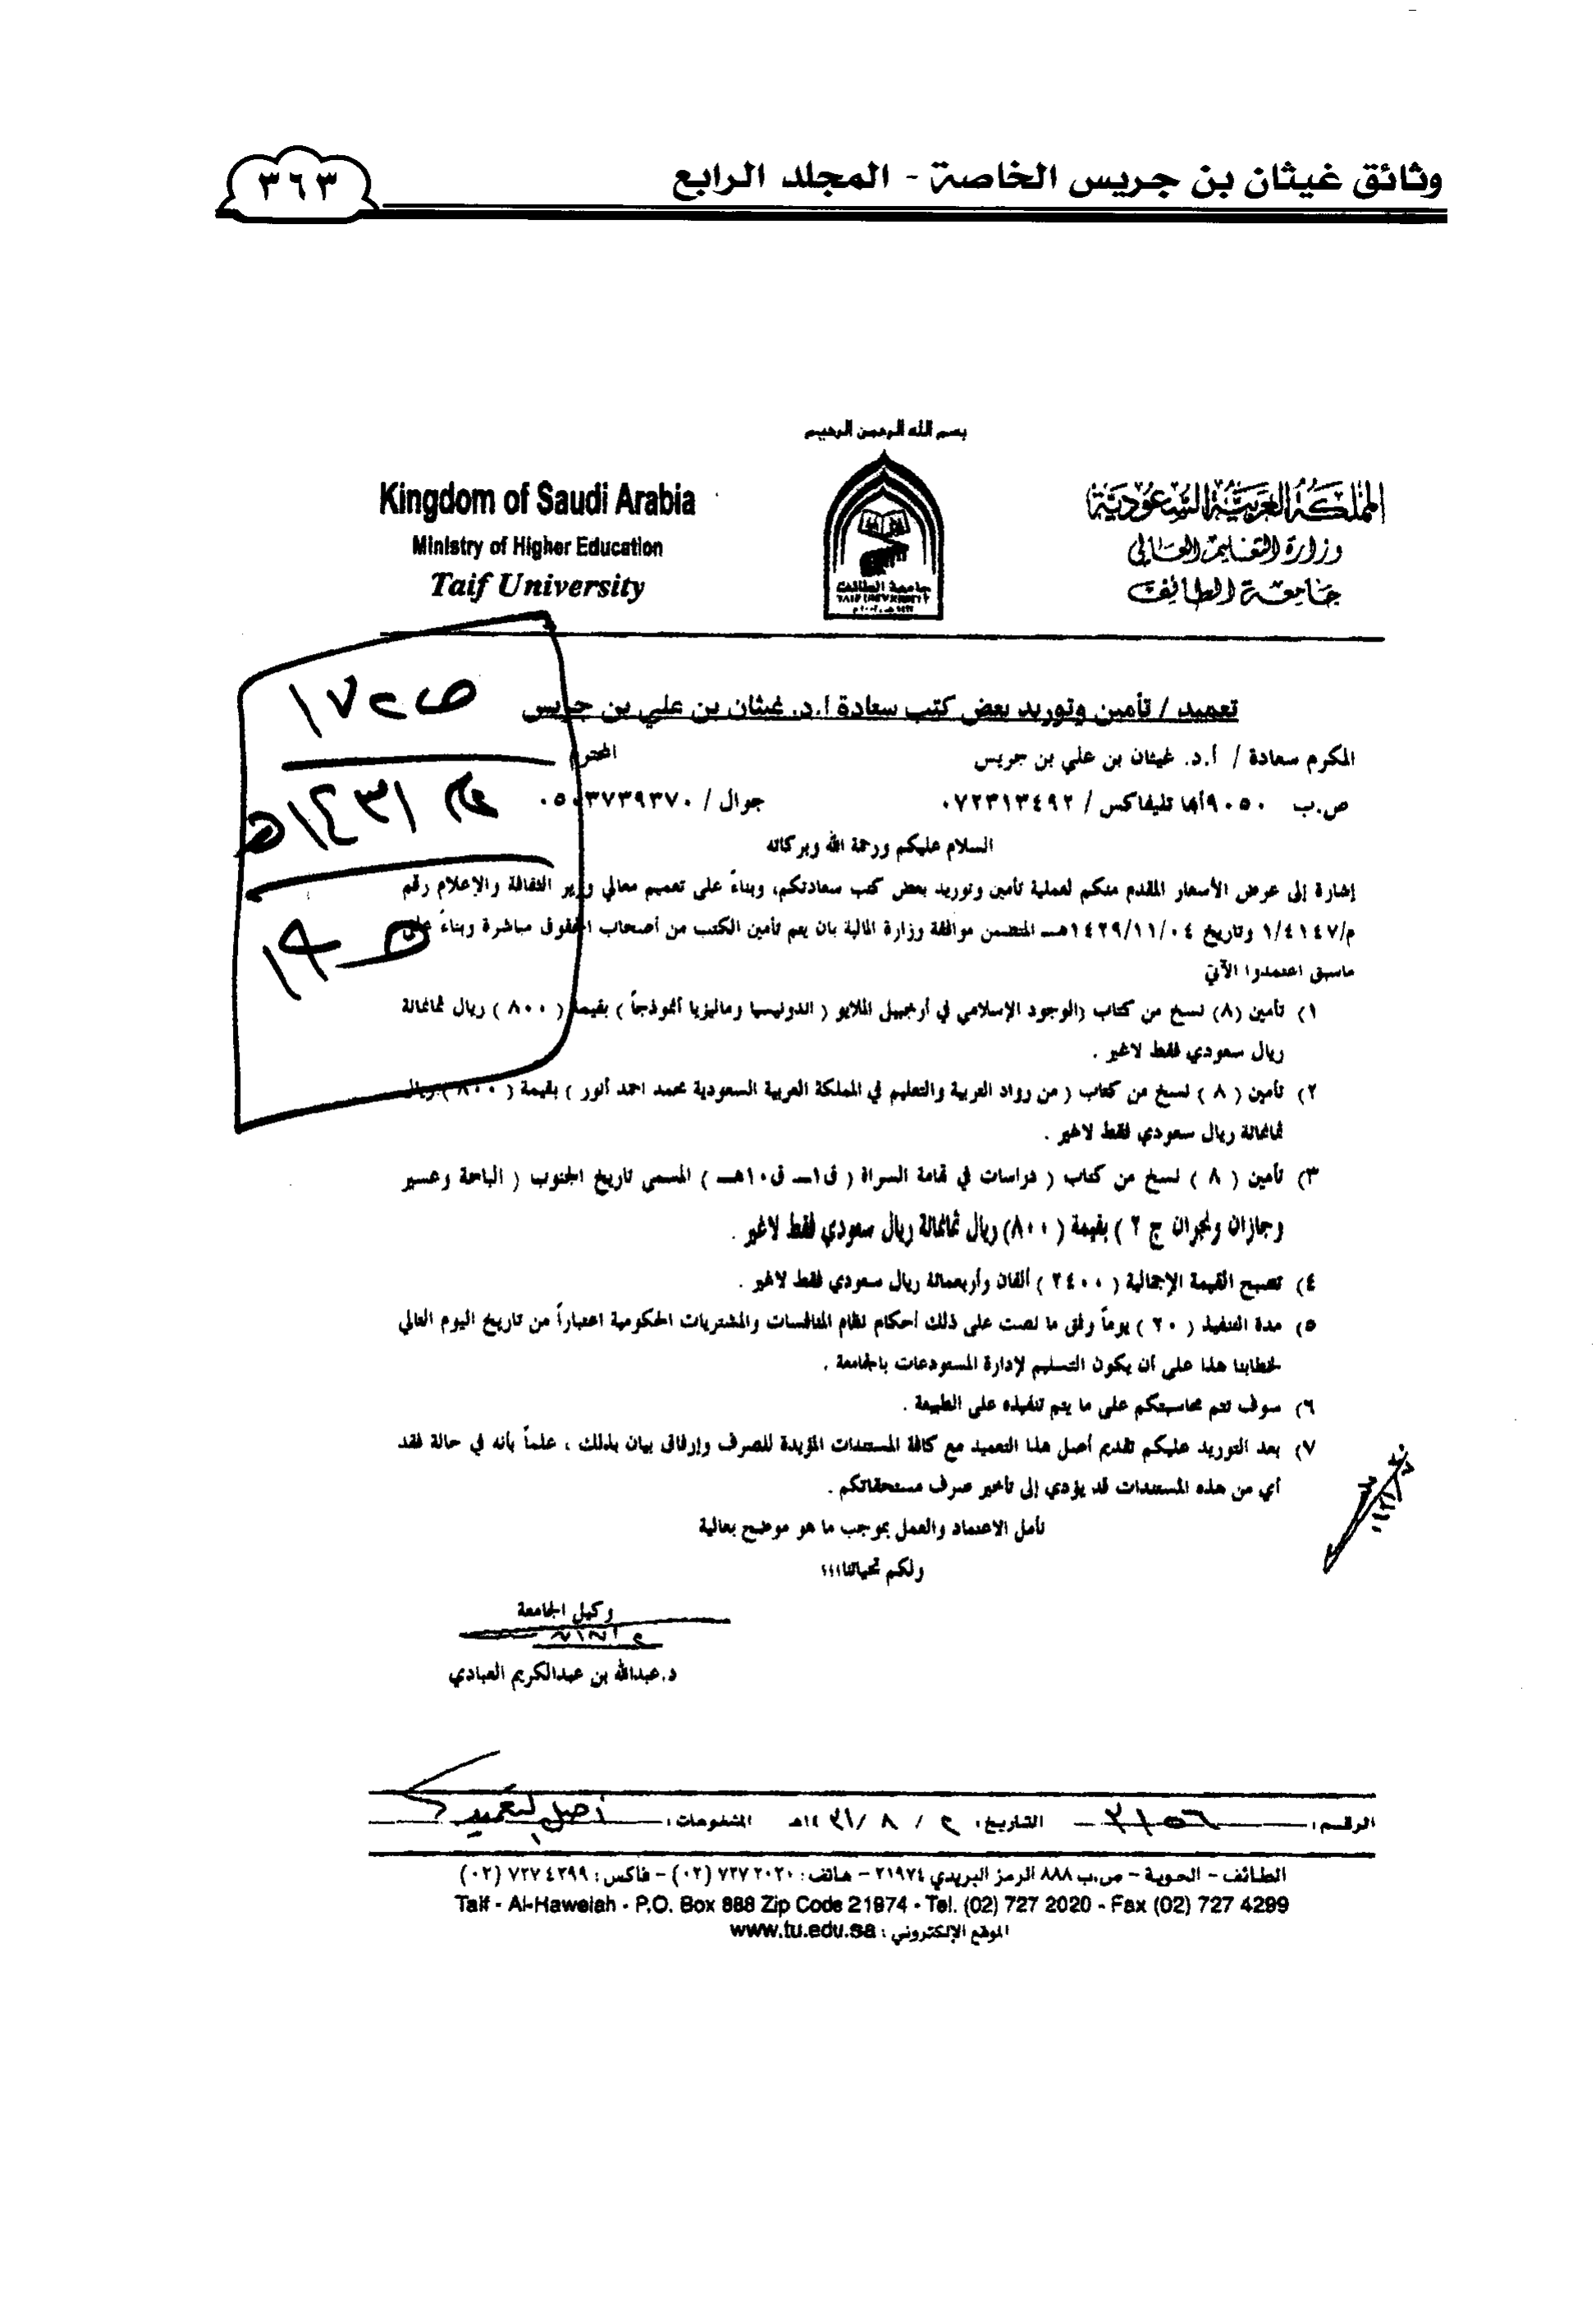 وثائق غيثان بن جريس الخاصة - المجلد الرابع
٣٦٣
بسم الله الرحمن الرحيم
المملكة العربية السعودية
وزارة التعليم العالي
جامعة الطائف
Kingdom of Saudi Arabia
Ministry of Higher Education
Taif University
جامعة الطائف
TAIF UNIVERSITY
تعميد / تأمين وتوريد بعض كتب سعادة أ.د. غيثان بن علي بن جريس
المكرم سعادة / أ.د. غيثان بن علي بن جريس المحترم
ص.ب ٩٠٥٠ أبها تليفاكس / ٠٧٢٣١٣٤٩٢ جوال /
السلام عليكم ورحمة الله وبركاته
إشارة إلى عرض الأسعار المقدم منكم لعملية تأمين وتوريد بعض كتب سعادتكم، وبناءً على تعميم معالي وزير الثقافة والإعلام رقم
م/١/٤١٤٧ وتاريخ ١٤٢٩/١١/٠٤هـ المتضمن موافقة وزارة المالية بان يتم تأمين الكتب من أصحاب الحقوق مباشرة وبناءً على
ماسبق اعتمدوا الآتي
١) تأمين (٨) نسخ من كتاب (الوجود الإسلامي في أرخبيل الملايو ( اندونيسيا وماليزيا أنموذجاً ) بقيمة ( ٨٠٠ ) ريال ثمانمائة
ريال سعودي فقط لاغير .
٢) تأمين ( ٨ ) نسخ من كتاب ( من رواد التربية والتعليم في المملكة العربية السعودية محمد احمد أنور ) بقيمة ( ٨٠٠ ) ريال
ثمانمائة ريال سعودي فقط لاغير .
٣) تأمين ( ٨ ) نسخ من كتاب ( دراسات في تهامة السراة ( ق١ــ ق١٠هــ ) المسمى تاريخ الجنوب ( الباحة وعسير
وجازان ونجران ج ٢ ) بقيمة ( ٨٠٠) ريال ثمانمائة ريال سعودي فقط لاغير .
٤) تصبح القيمة الإجمالية ( ٢٤٠٠ ) ألفان وأربعمائة ريال سعودي فقط لاغير .
٥) مدة التنفيذ ( ٢٠ ) يوماً وفق ما نصت على ذلك أحكام نظام المنافسات والمشتريات الحكومية اعتباراً من تاريخ اليوم التالي
لخطابنا هذا على أن يكون التسليم لإدارة المستودعات بالجامعة .
٦) سوف تتم محاسبتكم على ما يتم تنفيذه على الطبيعة .
٧) بعد التوريد عليكم تقديم أصل هذا التعميد مع كافة المستندات المؤيدة للصرف وإرفاق بيان بذلك ، علماً بأنه في حالة فقد
أي من هذه المستندات قد يؤدي إلى تأخير صرف مستحقاتكم .
نأمل الاعتماد والعمل بموجب ما هو موضح بعالية
ولكم تحياتنا،،،
وكيل الجامعة
د.عبدالله بن عبدالكريم العبادي
الرقم: ٣١٥٦ التاريخ: ٢ / ٨ / ١٤٣١هـ المشفوعات: أصل التعميد
الطائف - الحوية - ص.ب ٨٨٨ الرمز البريدي ٢١٩٧٤ - هاتف: ٧٢٧٢٠٢٠ (٠٢) - فاكس: ٧٢٧٤٢٩٩ (٠٢)
Taif - Al-Haweiah - P.O. Box 888 Zip Code 21974 - Tel. (02) 727 2020 - Fax (02) 727 4299
الموقع الإلكتروني : www.tu.edu.sa